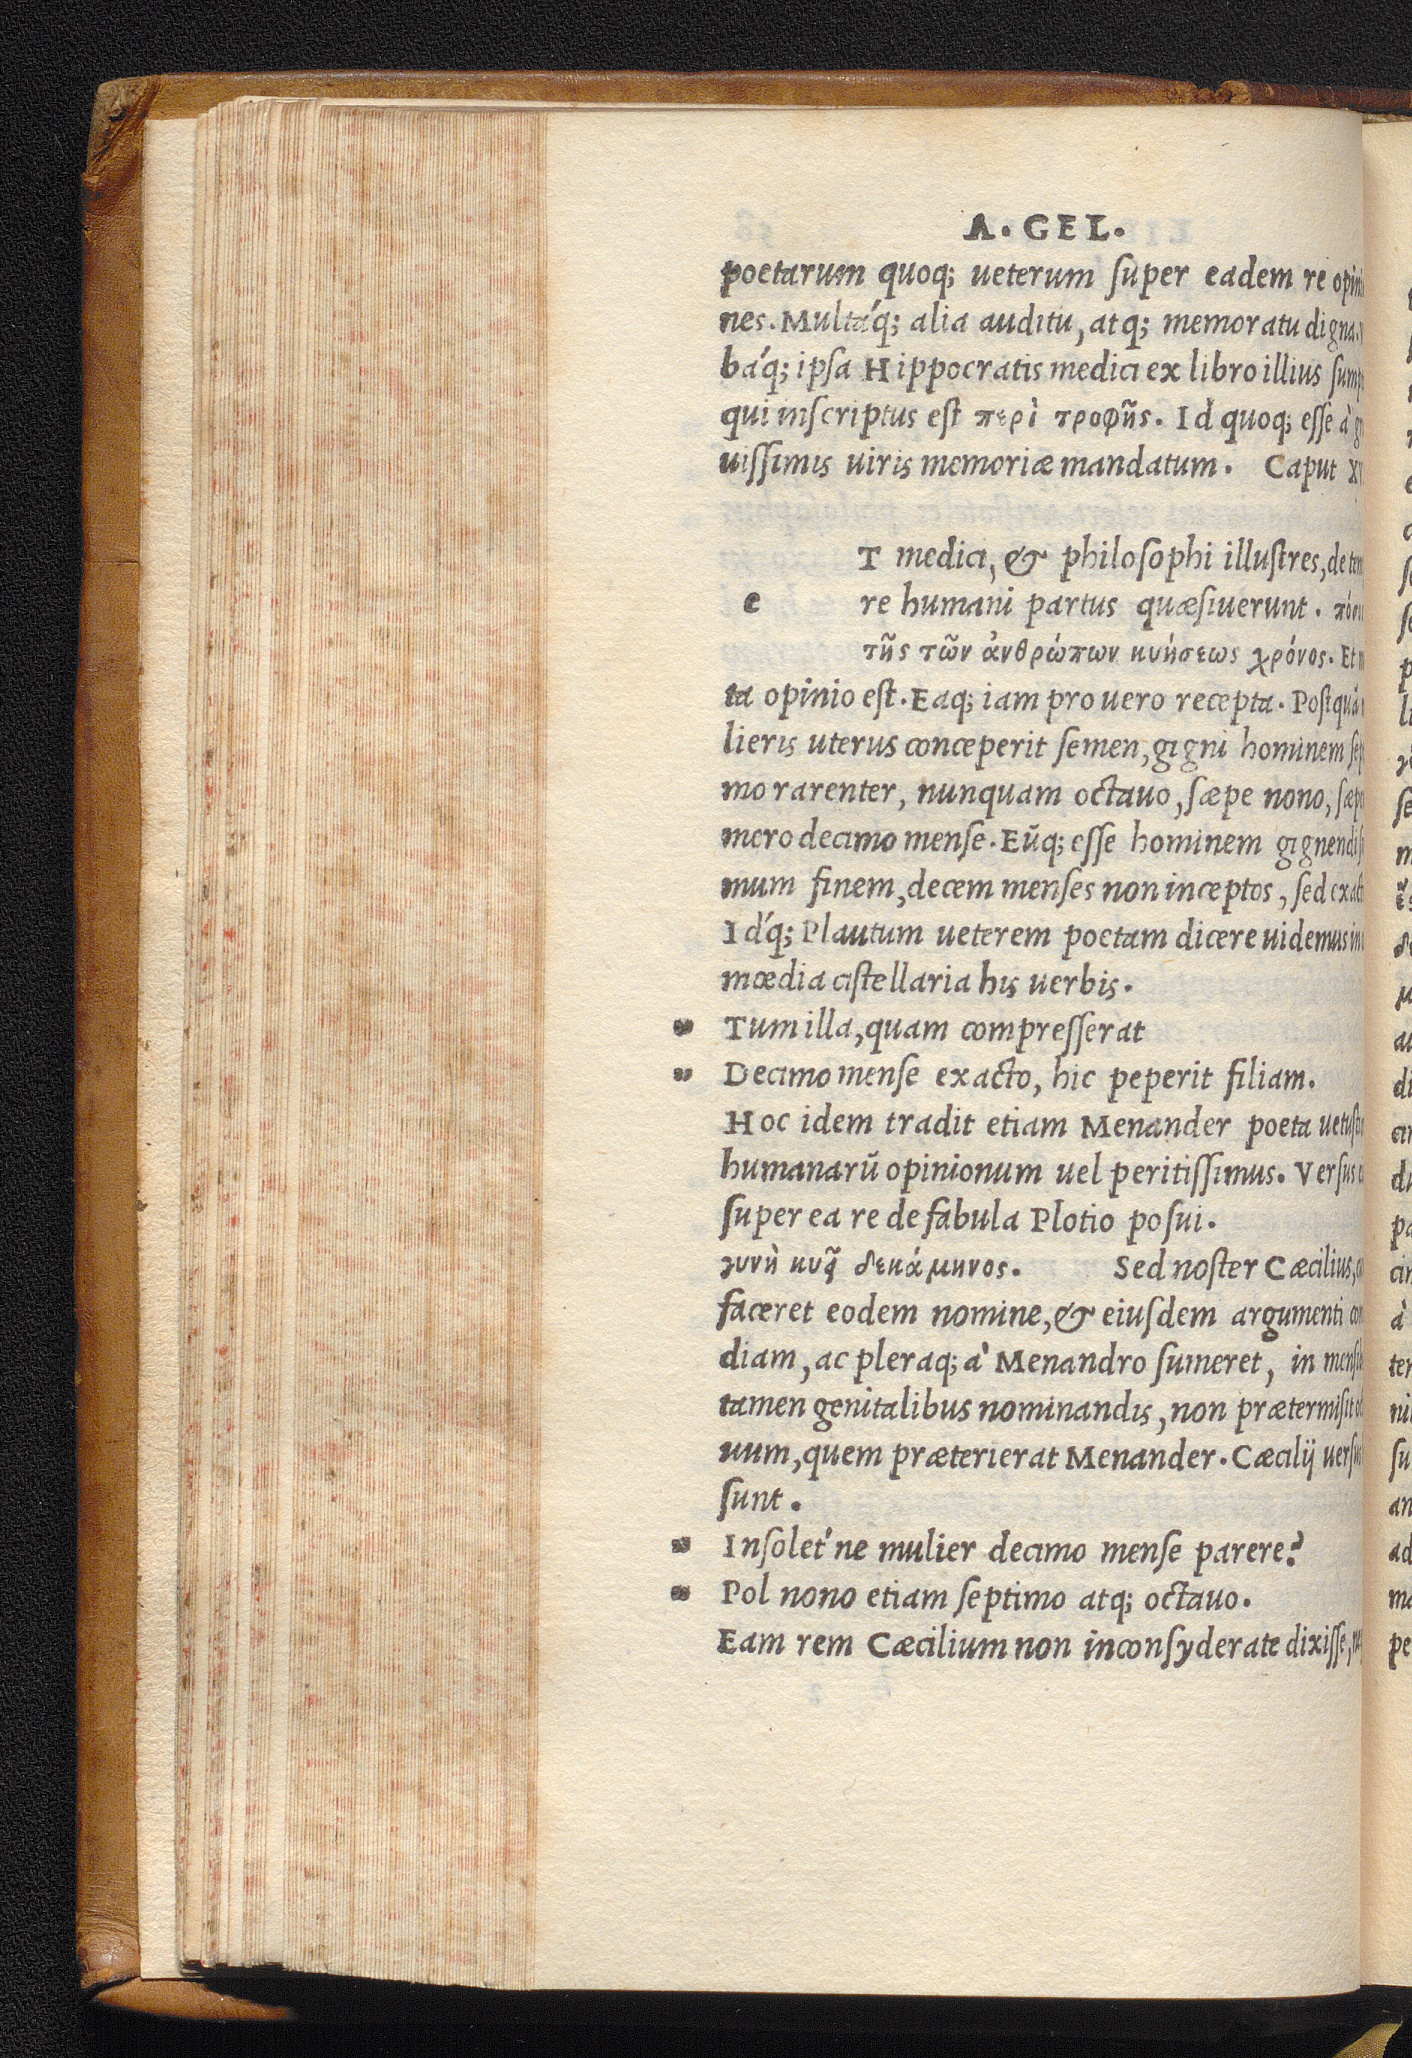 A. GEL.
poetarum quoq; ueterum ſuper eadem re
nes. Multáq; alia auditu, atq; memoratu digna.
báq; ipſa Hippocratis medici ex libro illius
qui inſcriptus eſt περὶ τροφῆς. Id quoq; eſſe à
uiſſimis uiris memoriæ mandatum. Caput
T medici, & philoſophi illuſtres, de
e re humani partus quæſiuerunt.
τῆς τῶν ἀνθρώπων κυήσεως χρόνος. Et
ta opinio eſt. Eaq; iam pro uero recepta. Poſtquã
lieris uterus conceperit ſemen, gigni hominem
mo rarenter, nunquam octauo, ſæpe nono,
mero decimo menſe. Eũq; eſſe hominem gignendi
mum finem, decem menſes non inceptos, ſed
Idq́; Plautum ueterem poetam dicere uidemus in
mœdia ciſtellaria his uerbis.
" Tum illa, quam compreſſerat
" Decimo menſe exacto, hic peperit filiam.
Hoc idem tradit etiam Menander poeta
humanarũ opinionum uel peritiſſimus. Verſus
ſuper ea re de fabula Plotio poſui.
γυνὴ κυῇ δεκάμηνος. Sed noſter Cæcilius,
faceret eodem nomine, & eiuſdem argumenti
diam, ac pleraq; à Menandro ſumeret, in
tamen genitalibus nominandis, non prætermiſit
uum, quem præterierat Menander. Cæcilij
ſunt.
" Inſolet́ne mulier decimo menſe parere?
" Pol nono etiam ſeptimo atq; octauo.
Eam rem Cæcilium non inconſyderate dixiſſe,